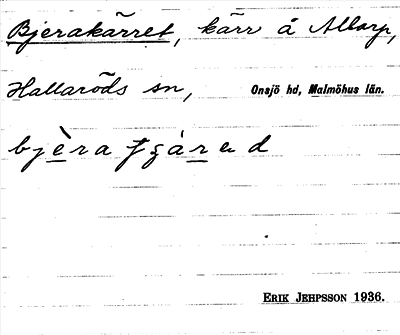 Bjerakärret, kärr å Allarp,
Hallaröds sn, Onsjö hd, Malmöhus län.
ERIK JEHPSSON 1936.